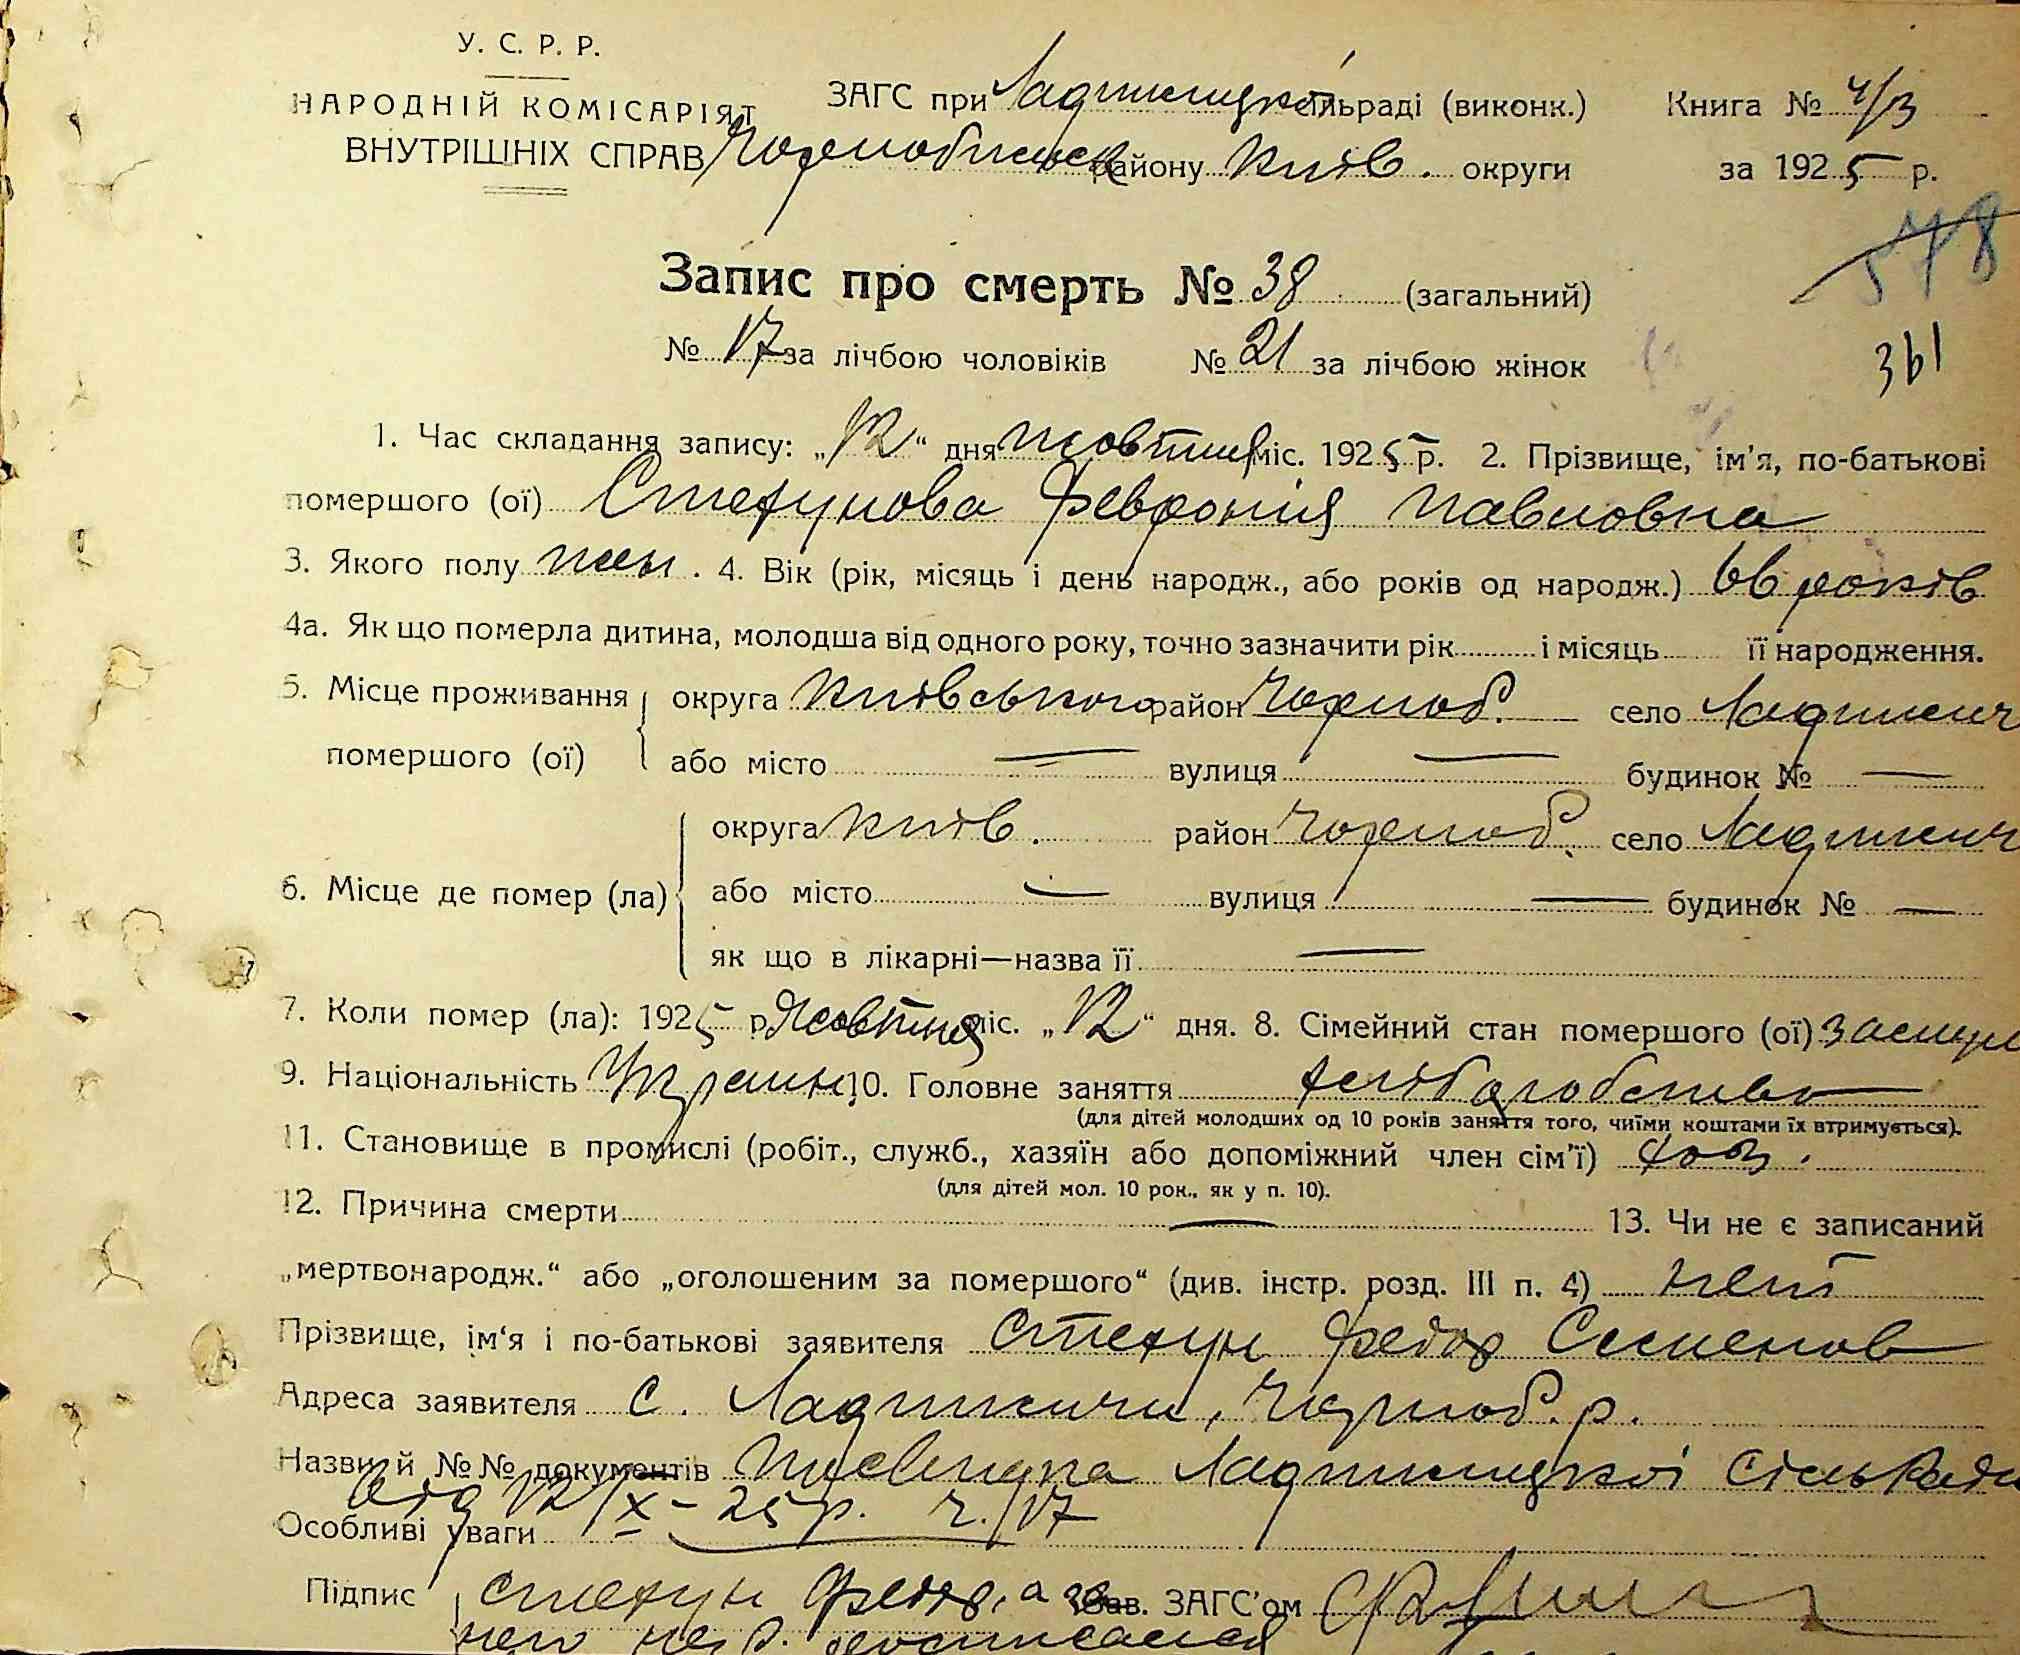 У. С. Р. Р.
НАРОДНІЙ КОМІСАРІЯТ
ВНУТРІШНІХ СПРАВ
ЗАГС при Ладижицької сільраді (виконк.) Книга № 4/3
Чорнобильск району Київ. округи за 1925 р.
578
Запис про смерть № 38 (загальний)
№ 17 за лічбою чоловіків № 21 за лічбою жінок
361
1. Час складання запису: „12“ дня жовтня міс. 1925 р. 2. Прізвище, ім'я, по-батькові
помершого (ої) Стехунова Февронія Павловна
3. Якого полу жен. 4. Вік (рік, місяць і день народж., або років од народж.) 66 років
4а. Як що померла дитина, молодша від одного року, точно зазначити рік і місяць її народження.
5. Місце проживання округа Київського район Чорноб. село Ладижич
помершого (ої) або місто — вулиця — будинок № —
округа Київ. район Чорноб. село Ладижич
6. Місце де помер (ла) або місто — вулиця — будинок № —
як що в лікарні—назва її —
7. Коли помер (ла): 1925 р. Жовтня міс. „12“ дня. 8. Сімейний стан помершого (ої) замуж
9. Національність Україн. 10. Головне заняття хліборобство
(для дітей молодших од 10 років заняття того, чиїми коштами їх втримується).
11. Становище в промислі (робіт., служб., хазяїн або допоміжний член сім'ї) хоз.
(для дітей мол. 10 рок., як у п. 10).
12. Причина смерти — 13. Чи не є записаний
„мертвонародж.“ або „оголошеним за помершого“ (див. інстр. розд. III п. 4) нет
Прізвище, ім'я і по-батькові заявителя Стехун Федор Семенов
Адреса заявителя с. Ладижичи, Чорноб. р.
Назви й №№ документів Посвидка Ладижицкої сільради
від 12/X – 25 р. ч. 17
Особливі уваги
Підпис Стехун Федор, а за Зав. ЗАГС'ом
него расписался